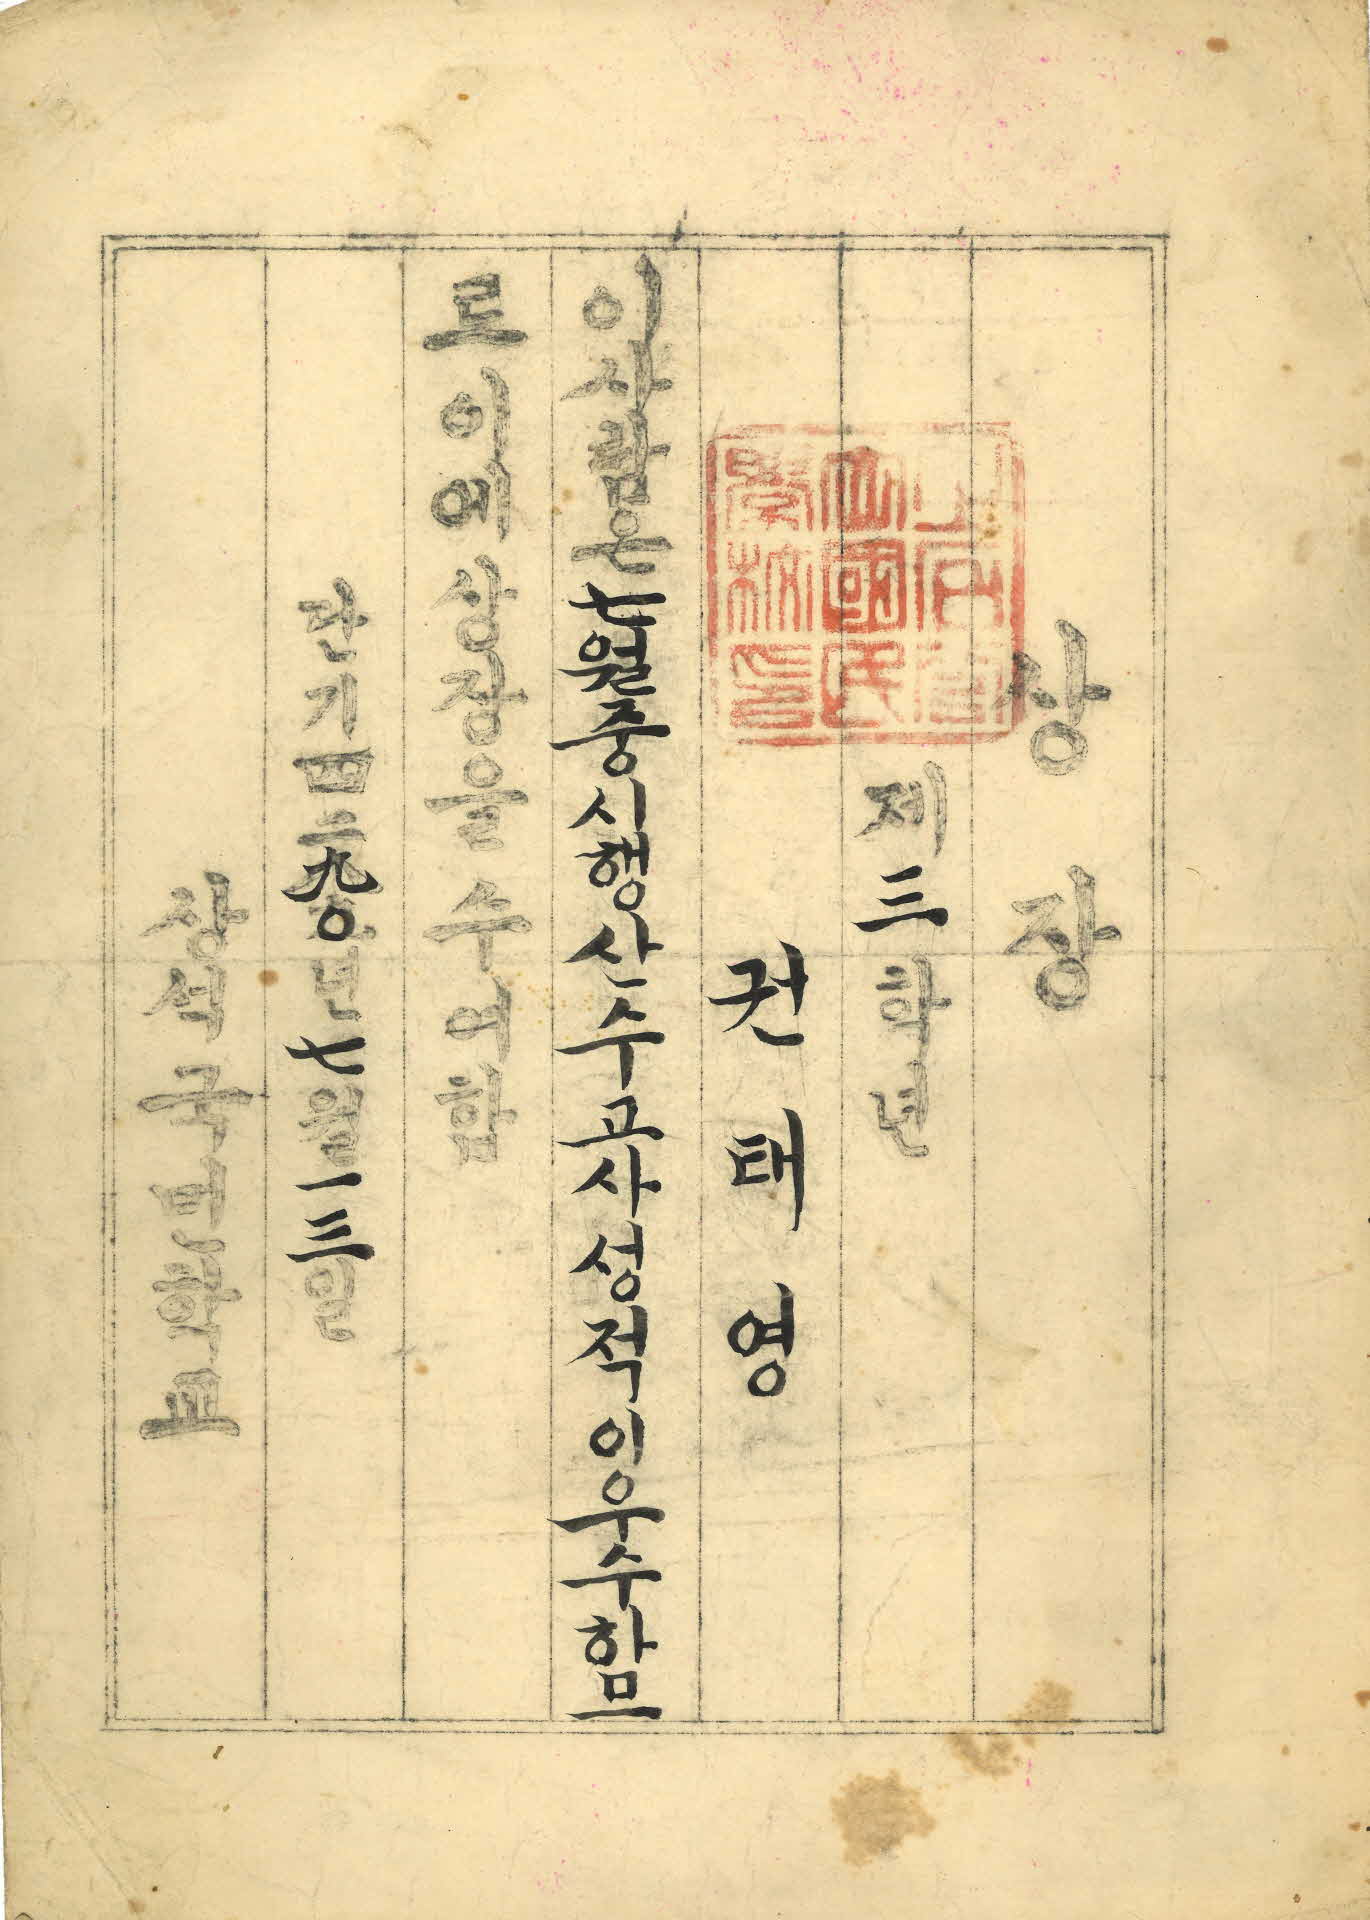 상장
제三학년
권태영
이사람은七월중시행산수고사성적이우수함으
로이에상장을수여함
단기四二九〇년七월一三일
창석국민학교